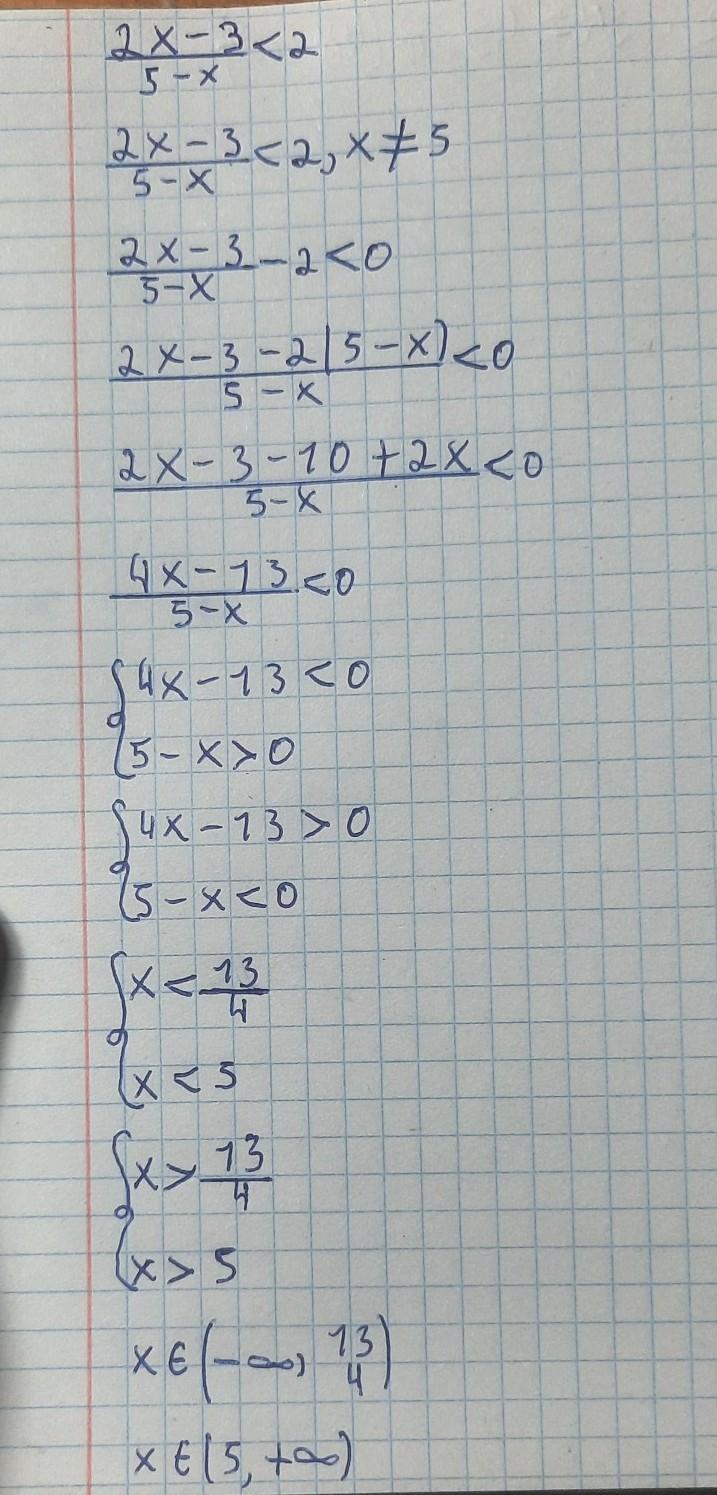 (2x-3)/(5-x) < 2
(2x-3)/(5-x) < 2, x ≠ 5
(2x-3)/(5-x) - 2 < 0
(2x-3-2(5-x))/(5-x) < 0
(2x-3-10+2x)/(5-x) < 0
(4x-13)/(5-x) < 0
{4x-13 < 0
5-x > 0
{4x-13 > 0
5-x < 0
{x < 13/4
x < 5
{x > 13/4
x > 5
x ∈ (-∞, 13/4)
x ∈ (5, +∞)